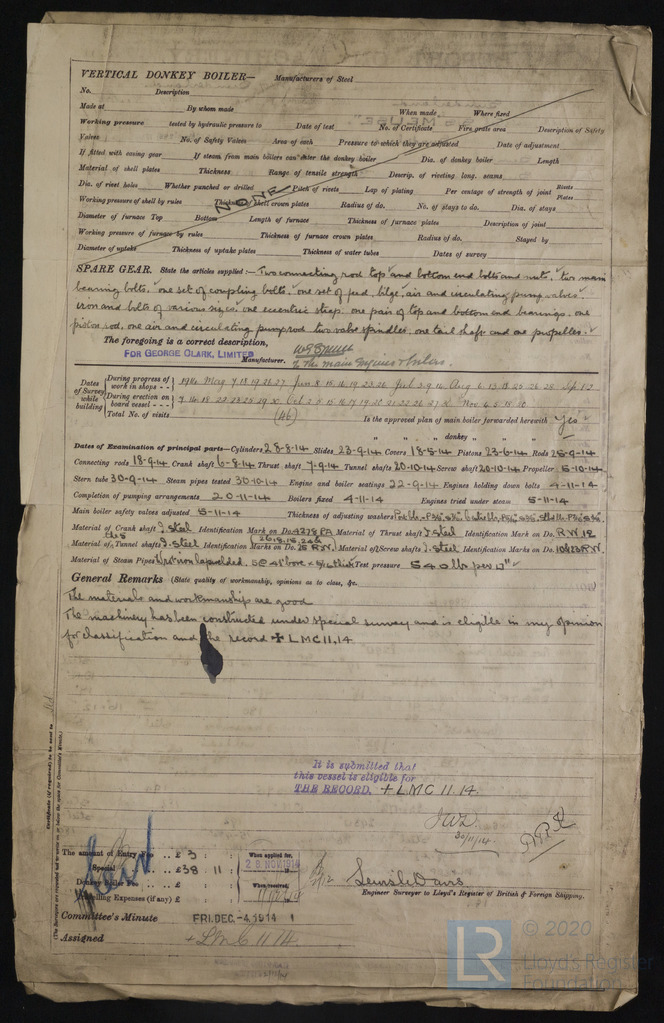 VERTICAL DONKEY BOILER— Manufacturers of Steel
No. Description
Made at By whom made When made Where fixed
Working pressure tested by hydraulic pressure to Date of test No. of Certificate Fire grate area Description of Safety
Valves No. of Safety Valves Area of each Pressure to which they are adjusted Date of adjustment
If fitted with easing gear If steam from main boilers can enter the donkey boiler Dia. of donkey boiler Length
Material of shell plates Thickness Range of tensile strength Descrip. of riveting long. seams
Dia. of rivet holes Whether punched or drilled Pitch of rivets Lap of plating Per centage of strength of joint Rivets Plates
NONE
Working pressure of shell by rules Thickness of shell crown plates Radius of do. No. of stays to do. Dia. of stays
Diameter of furnace Top Bottom Length of furnace Thickness of furnace plates Description of joint
Working pressure of furnace by rules Thickness of furnace crown plates Radius of do. Stayed by
Diameter of uptake Thickness of uptake plates Thickness of water tubes Dates of survey
SPARE GEAR. State the articles supplied:— Two connecting rod top and bottom end bolts and nuts, two main
bearing bolts, one set of coupling bolts, one set of feed, bilge, air and circulating pump valves
iron and bolts of various sizes, one eccentric strap, one pair of top and bottom end bearings, one
piston rod, one air and circulating pump rod two valve spindles, one tail shaft and one propeller.
The foregoing is a correct description,
FOR GEORGE CLARK, LIMITED Manufacturer. of the main Engines & boilers.
Dates of Survey while building
During progress of work in shops - - 1914 May 7 18 19 26 27 Jun 8 15 16 19 23 26 Jul 2 9 16 Aug 6 13 18 25 26 28 Sep 1 2
During erection on board vessel - - -
Total No. of visits (46) Is the approved plan of main boiler forwarded herewith Yes
" " " donkey " " "
Dates of Examination of principal parts—Cylinders 28-8-14 Slides 23-9-14 Covers 18-5-14 Pistons 23-6-14 Rods 25-9-14
Connecting rods 18-9-14 Crank shaft 6-8-14 Thrust shaft 7-9-14 Tunnel shafts 20-10-14 Screw shaft 20-10-14 Propeller 15-10-14
Stern tube 30-9-14 Steam pipes tested 30-10-14 Engine and boiler seatings 22-9-14 Engines holding down bolts 4-11-14
Completion of pumping arrangements 20-11-14 Boilers fixed 4-11-14 Engines tried under steam 5-11-14
Main boiler safety valves adjusted 5-11-14 Thickness of adjusting washers
Material of Crank shaft I. Steel Identification Mark on Do. 4278 PA Material of Thrust shaft I. Steel Identification Mark on Do. R.W. 12
Material of Tunnel shafts I. Steel Identification Marks on Do. R.W. Material of Screw shafts I. Steel Identification Marks on Do. R.W.
Material of Steam Pipes Wrt iron lapwelded. Test pressure 540 lbs per □"
General Remarks (State quality of workmanship, opinions as to class, &c.
The materials and workmanship are good
The machinery has been constructed under special survey and is eligible in my opinion
for classification and the record ✠ LMC 11.14
Certificate (if required) to be sent to
(The Surveyors are requested not to write on or below the space for Committee's Minute.)
It is submitted that
this vessel is eligible for
THE RECORD. + LMC 11.14.
JWD
30/11/14
The amount of Entry Fee .. £ 3 : : When applied for,
Special .. £ 38 : 11 : 28 NOV 1914
Donkey Boiler Fee .. £ : : When received,
Travelling Expenses (if any) £ : :
Engineer Surveyor to Lloyd's Register of British & Foreign Shipping.
Committee's Minute FRI. DEC -4. 1914
Assigned + LMC 11 14
LR
© 2020
Lloyd's Register
Foundation